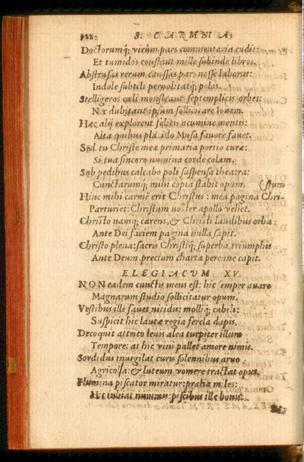 S. CARMINA
Doctorumq; virûm pars commentaria cudit:
Et tumidos constat mille subinde libros.
Abstrusas rerum caussas pars nosse laborat:
Indole subtili pervolitatq; polos.
Stelligeros cœli septemplicis orbes:
sollicitare Iovem.
Hæc alij explorent felicis acumine mentis:
Alta quibus placido Musa favore favet.
Sed tu Christe mea primaria portio curæ:
Si tua sincero numina corde colam,
Sub pedibus calcabo poli suspensa theatra:
Cunctarumq; mihi copia stabit opum.
Hinc mihi carmē erit Christus: mea pagina Chri-
(stum
Parturiet: Christum noster apollo vehet.
Christo namq; carens, & Christi laudibus orba
Ante Dei faciem pagina nulla sapit.
Christo plena: sacris Christiq; superba triumphis
Ante Deum precium charta perenne capit.
ELEGIACUM XV.
NON eadem cunctis mens est: hic semper avaro
Magnarum studio sollicitatur opum.
Vestibus ille favet nitidis: mollibq; cubilis:
Suspicit hic lautæ regia fercla dapis.
Decoquit alterius ævum turpiter illum
Tempore: at hic vini pallet amore nimis.
Sordidus invigilat curis solennibus arvo
Agricola: & luteum vomere tractat opus.
Flumina piscator miratur: prælia miles:
piscibus ille bonis.